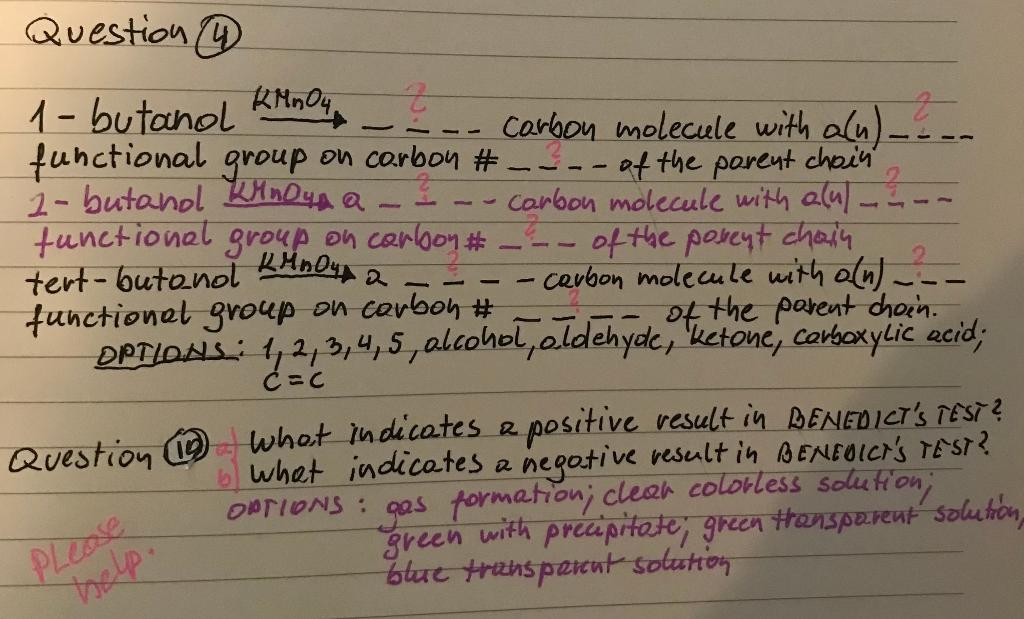 Question 4
?
?
1-butanol KMnO4 → _ _ _ _ carbon molecule with a(n) _ _ _ _
?
functional group on carbon # _ _ _ _ of the parent chain
?
?
2-butanol KMnO4 → a _ _ _ _ carbon molecule with a(n) _ _ _ _
?
functional group on carbon # _ _ _ of the parent chain
?
?
tert-butanol KMnO4 → a _ _ _ _ carbon molecule with a(n) _ _ _
?
functional group on carbon # _ _ _ _ of the parent chain.
OPTIONS: 1, 2, 3, 4, 5, alcohol, aldehyde, ketone, carboxylic acid;
C=C
Question 10 a) What indicates a positive result in BENEDICT'S TEST?
b) What indicates a negative result in BENEDICT'S TEST?
OPTIONS: gas formation; clear colorless solution;
green with precipitate; green transparent solution,
blue transparent solution
Please
help.